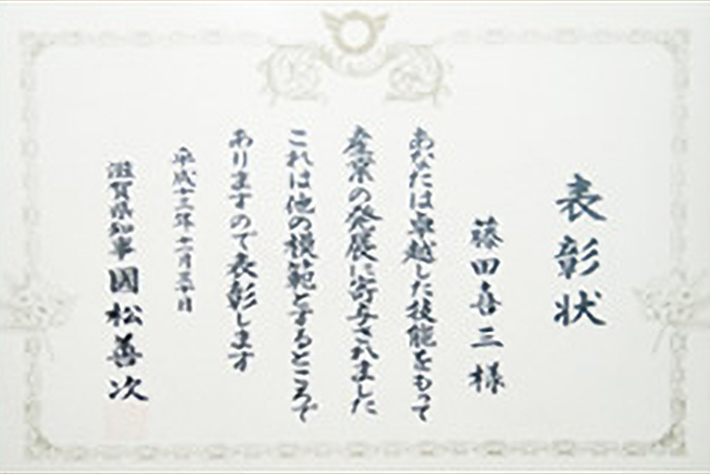 表彰状
藤田喜三様
あなたは卓越した技能をもって
産業の発展に寄与されました
これは他の模範とするところで
ありますので表彰します
平成十三年十一月三十日
滋賀県知事 國松善次